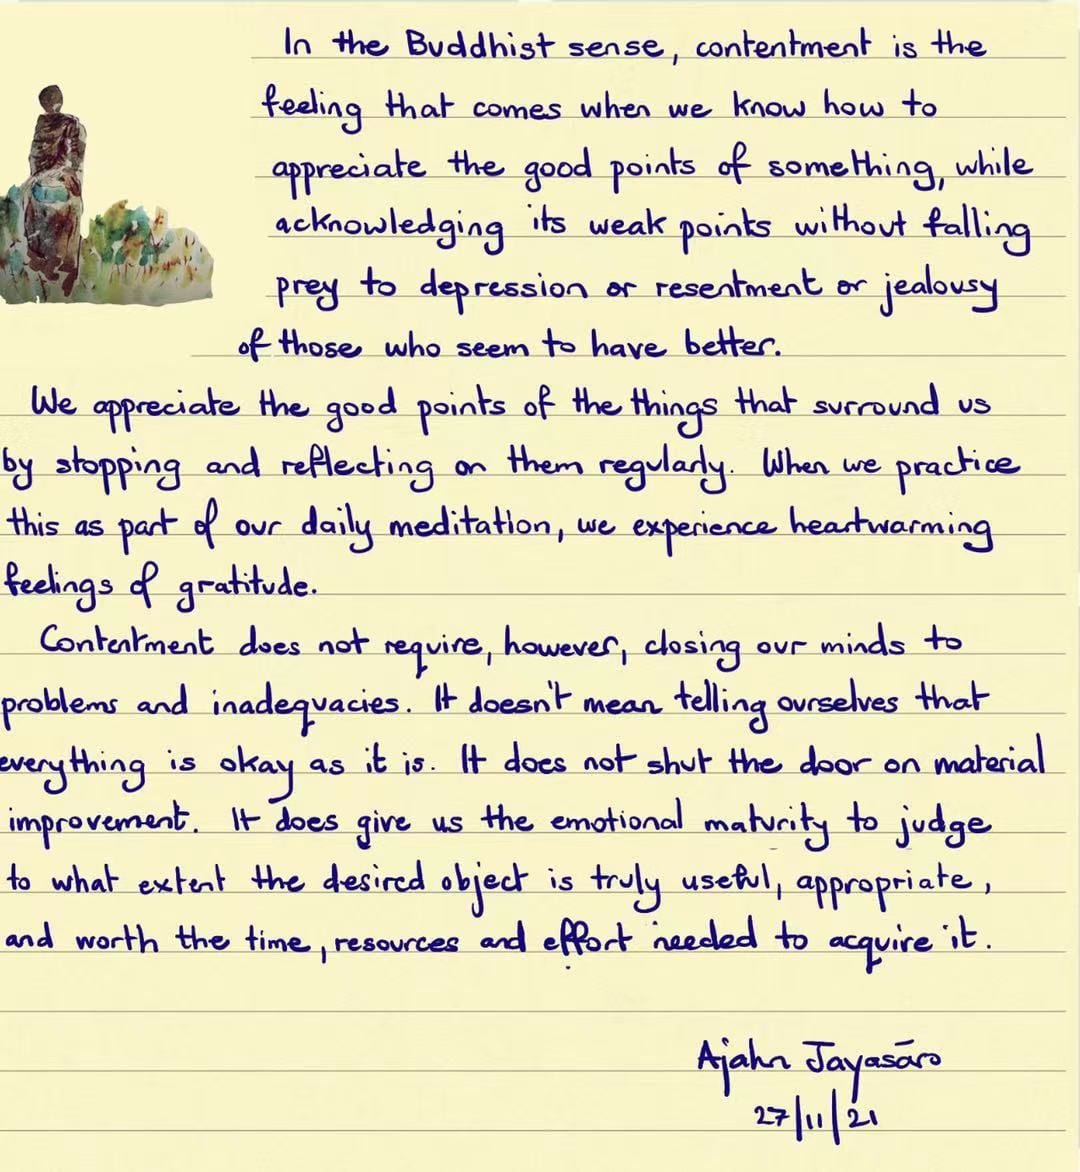 In the Buddhist sense, contentment is the
feeling that comes when we know how to
appreciate the good points of something, while
acknowledging its weak points without falling
prey to depression or resentment or jealousy
of those who seem to have better.
We appreciate the good points of the things that surround us
by stopping and reflecting on them regularly. When we practice
this as part of our daily meditation, we experience heartwarming
feelings of gratitude.
Contentment does not require, however, closing our minds to
problems and inadequacies. It doesn't mean telling ourselves that
everything is okay as it is. It does not shut the door on material
improvement. It does give us the emotional maturity to judge
to what extent the desired object is truly useful, appropriate,
and worth the time, resources and effort needed to acquire it.
Ajahn Jayasāro
27/11/21